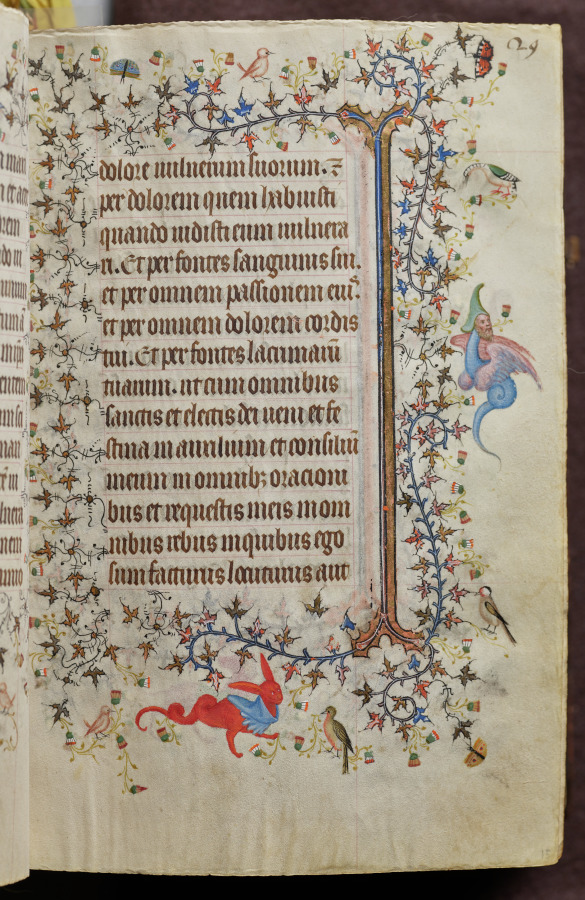 29
man
dolore uulnerum suorum. ⁊
per dolorem quem habuisti
quando uidisti eum uulnera
ri. Et per fontes sanguinis sui.
et per omnem passionem eiu̅.
et per omnem dolorem cordis
tui. Et per fontes lacrimaru̅
tuarum. ut cum omnibus
sanctis et electis dei ueni et fe
stina in auxilium et consiliu̅
meum in omnibꝫ orationi
bus et requestis meis in om
nibus rebus in quibus ego
sum facturus locuturus aut